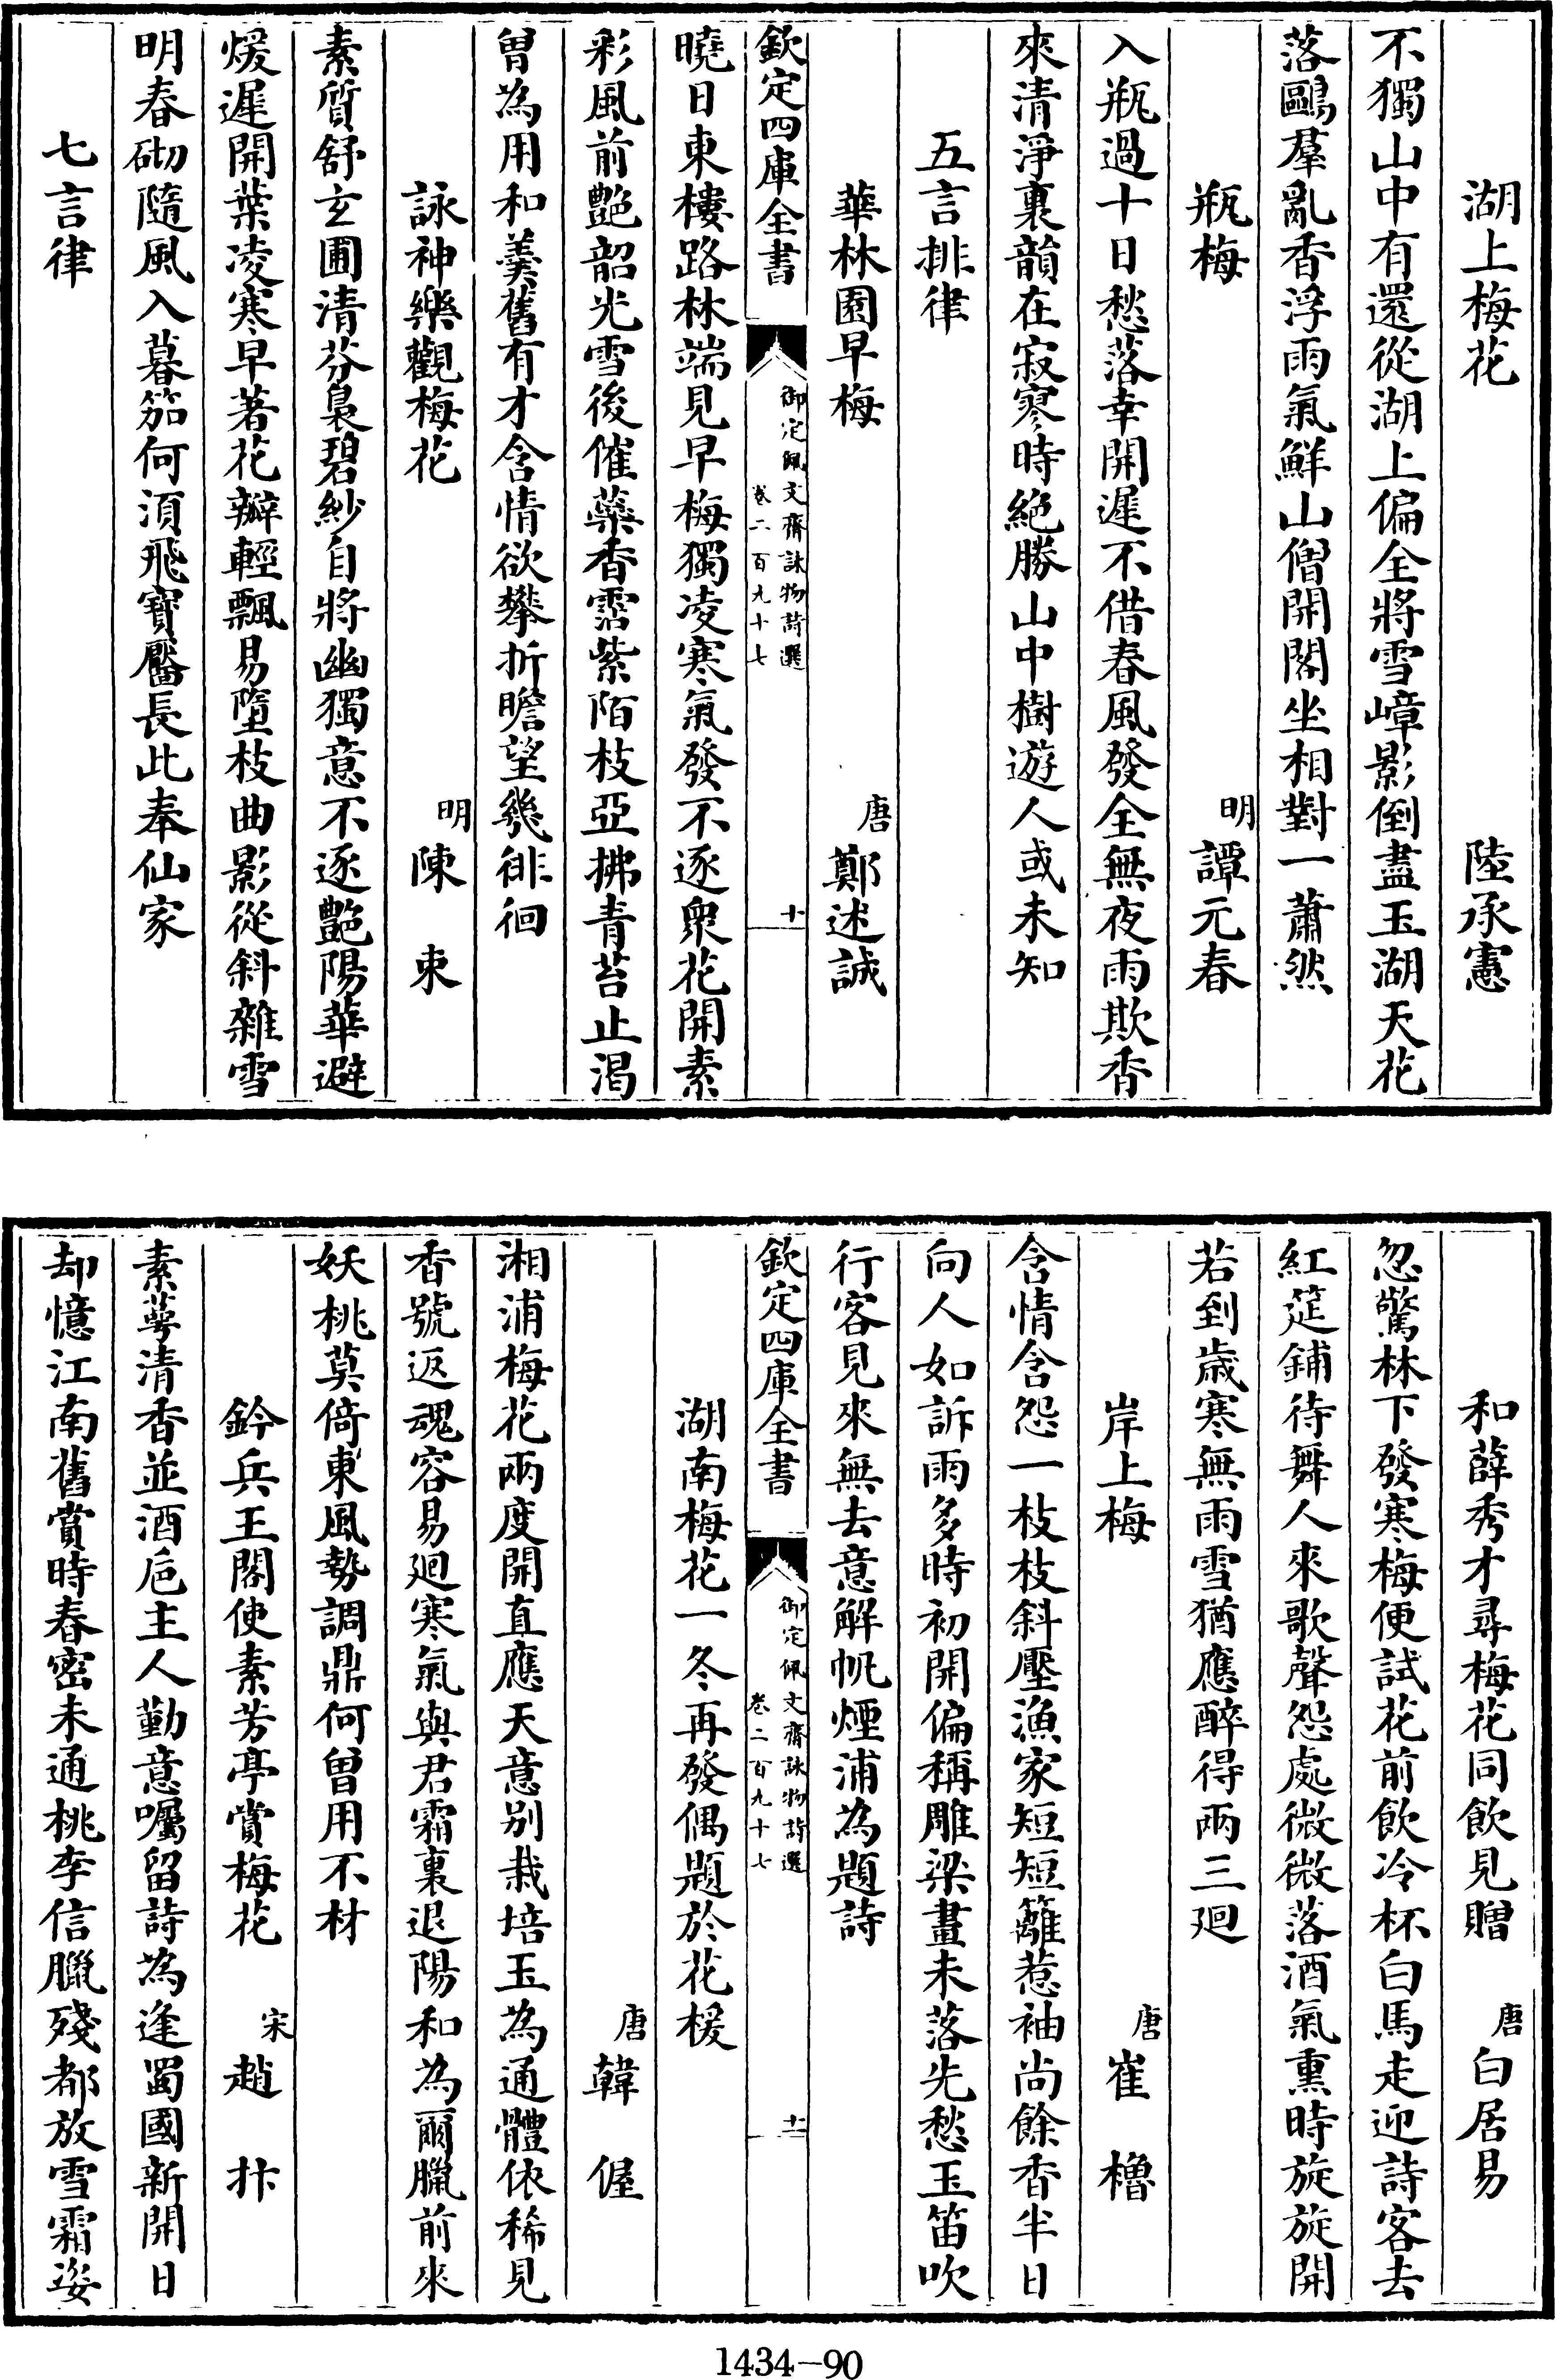 湖上梅花　陸承憲
不獨山中有還從湖上偏全將雪嶂影倒盡玉湖天花
落鷗羣亂香浮雨氣鮮山僧開閣坐相對一蕭然
瓶梅　明譚元春
入瓶過十日愁落幸開遲不借春風發全無夜雨欺香
來清淨裏韻在寂寥時絶勝山中樹遊人或未知
五言排律
華林園早梅　唐鄭述誠
欽定四庫全書　御定佩文齋詠物詩選　卷二百九十七　十
曉日東樓路林端見早梅獨凌寒氣發不逐衆花開素
彩風前艷韶光雪後催蘂香霑紫陌枝亞拂青苔止渴
曾為用和羮舊有才含情欲攀折瞻望幾徘徊
詠神樂觀梅花　明陳　束
素質舒玄圃清芬裊碧紗自將幽獨意不逐艷陽華避
煖遲開葉凌寒早著花瓣輕飄易墮枝曲影從斜雜雪
明春砌隨風入暮笳何須飛寶靨長此奉仙家
七言律
和薛秀才尋梅花同飲見贈　唐白居易
忽驚林下發寒梅便試花前飲冷杯白馬走迎詩客去
紅筵鋪待舞人來歌聲怨處微微落酒氣熏時旋旋開
若到歲寒無雨雪猶應醉得兩三廻
岸上梅　唐崔　櫓
含情含怨一枝枝斜壓漁家短短籬惹袖尚餘香半日
向人如訴雨多時初開偏稱雕梁畫未落先愁玉笛吹
行客見來無去意解帆煙浦為題詩
欽定四庫全書　御定佩文齋詠物詩選　卷二百九十七　十一
湖南梅花一冬再發偶題於花楥
唐韓　偓
湘浦梅花兩度開直應天意别栽培玉為通體依稀見
香號返魂容易廻寒氣與君霜裏退陽和為爾臘前來
妖桃莫倚東風勢調鼎何曾用不材
鈐兵王閣使素芳亭賞梅花　宋趙　抃
素萼清香並酒巵主人勤意囑留詩為逢蜀國新開日
却憶江南舊賞時春密未通桃李信臘殘都放雪霜姿
1434-90